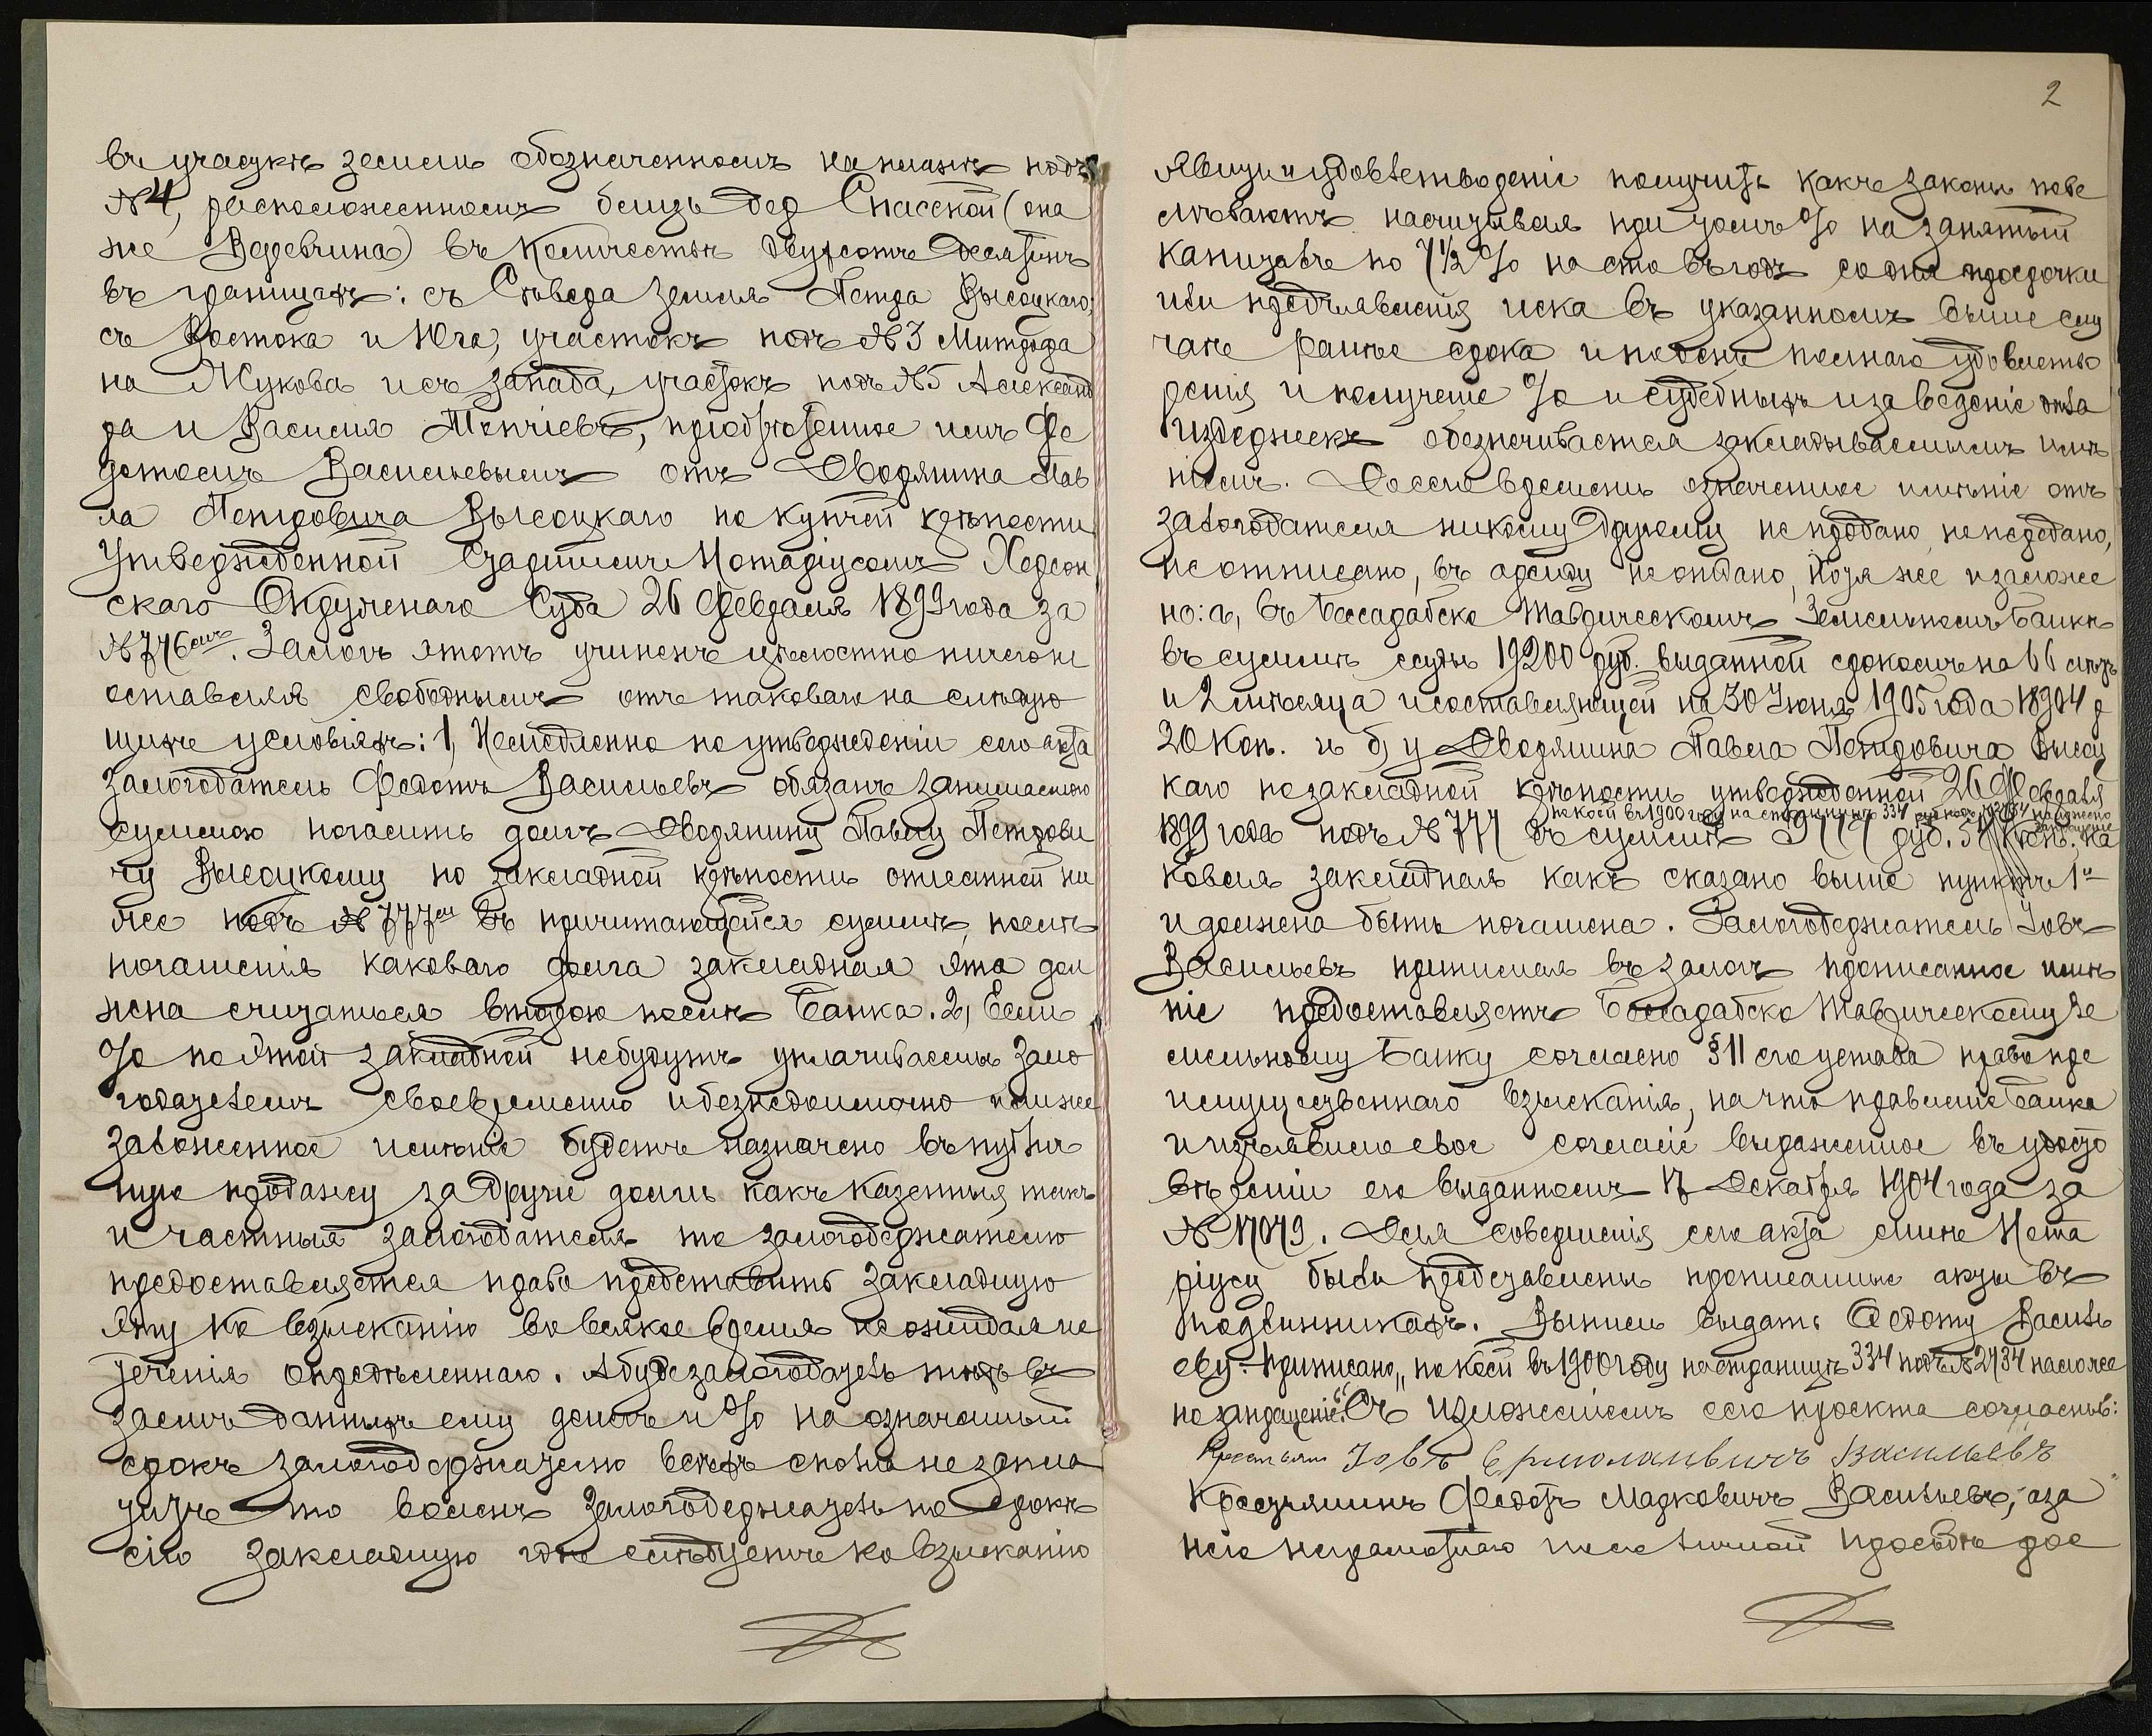 въ участкѣ земли обозначенномъ на планѣ подъ
№ 4, расположенномъ близь дер Спасской (она
же Веревчина) въ количествѣ двухсотъ десятинъ
въ границахъ: съ Сѣвера земля Петра Высоцкаго,
съ Востока и Юга, участокъ подъ № 3 Митрофа
на Жукова и съ запада, участокъ подъ № 5 Александ
ра и Василия, прiобрѣтенное имъ Фе
дотомъ Васильевымъ отъ Дворянина Пав
ла Петровича Высоцкаго по купчей крѣпости
утвержденной Старшимъ Нотарiусомъ Херсон
скаго Окружнаго Суда 26 Февраля 1899 года за
№ 776ымъ. Залогъ этотъ учиненъ цѣлостно ничего не
оставляя свободнымъ отъ таковаго на слѣдую
щихъ условiяхъ: 1, Немедленно по утвержденiи сего акта
залогодатель Федотъ Васильевъ обязанъ занимаемою
суммою погасить долгъ Дворянину Павлу Петрови
чу Высоцкому по закладной крѣпости описанной ни
же подъ № 777ой въ причитающейся суммѣ, послѣ
погашенiя каковаго долга закладная эта дол
жна считаться второю послѣ Банка. 2, Если
% по этой закладной не будутъ уплачиваемы зало
годателемъ своевременно и безнедоимочно или же
заложенное имѣнiе будетъ назначено въ публич
ную продажу за другiе долги какъ казенныя такъ
и частныя залогодателя то залогодержателю
предоставляется право представить закладную
эту ко взысканiю во всякое время не ожидая ис
теченiя опредѣленнаго. А буде залогодатель тѣхъ въ
заемъ данныхъ ему денегъ и % на означенный
срокъ залогодержателю всѣхъ сполна не запла
титъ то воленъ залогодержатель по срокѣ
сiю закладную гдѣ слѣдуетъ ко взысканiю
2
явить и удовлетворенiе получить какъ законы пове
лѣваютъ насчитывая при томъ % на занятый
капиталъ по 7½ % на сто въ годъ со дня просрочки
или предъявленiя иска въ указанномъ выше слу
чаѣ ранѣе срока и по день полнаго удовлетво
ренiя и полученiе % и судебныхъ и за веденiе дѣла
издержекъ обезпечивается закладываемымъ имѣ
нiемъ. До сего времени означенное имѣнiе отъ
залогодателя никому другому не продано, не передано,
не отписано, въ аренду не отдано, хотя же и заложе
но: а, въ Бессарабско Таврическомъ Земельномъ Банкѣ
въ суммѣ ссуды 19200 руб. выданной срокомъ на 66 лѣтъ
и 2 мѣсяца и составляющей на 30 Iюня 1905 года 18904 р
20 коп. и б, у Дворянина Павла Петровича Высоц
каго по закладной крѣпости утвержденной 26 Февраля
по коей въ 1900 году на страницѣ 334 подъ № 2434 наложено
запрещенiе
1899 года подъ № 777 въ суммѣ руб. коп. ка
ковая закладная какъ сказано выше пунктъ 1й
и должна быть погашена. Залогодержатель Iовъ
Васильевъ принимая въ залогъ прописанное имѣ
нiе предоставляетъ Бессарабско Таврическому Зе
мельному Банку согласно § 11 его устава право пре
имущественнаго взысканiя, на что правленiе Банка
и изъявило свое согласiе выраженное въ удосто
вѣренiи его выданномъ 17 Декабря 1904 года за
№ 17079. Для совершенiя сего акта мнѣ Нота
рiусу были представлены прописанные акты въ
подлинникахъ. Выпись выдать Федоту Василь
еву. Приписано „по коей въ 1900 году на страницѣ 334 подъ № 2434 наложе
но запрещенiе“. Съ изложенiемъ сего проекта согласны:
Крестьян Iовъ Ермолаевичъ Васильевъ
Крестьянинъ Федотъ Марковичъ Васильевъ, а за
него неграмотнаго по личной просьбѣ рос